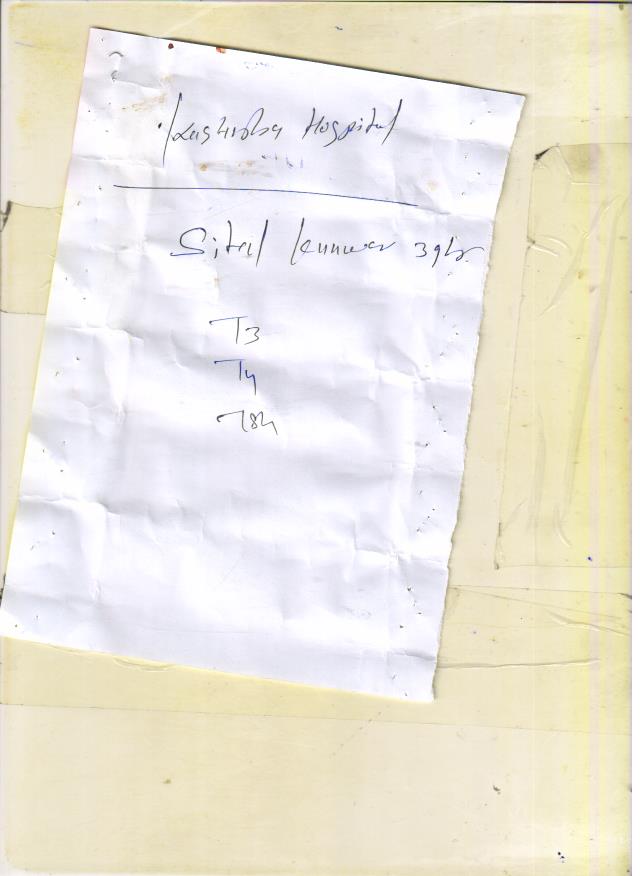 Kasturba Hospital
Sital kunwar 39yr
T3
T4
TSH